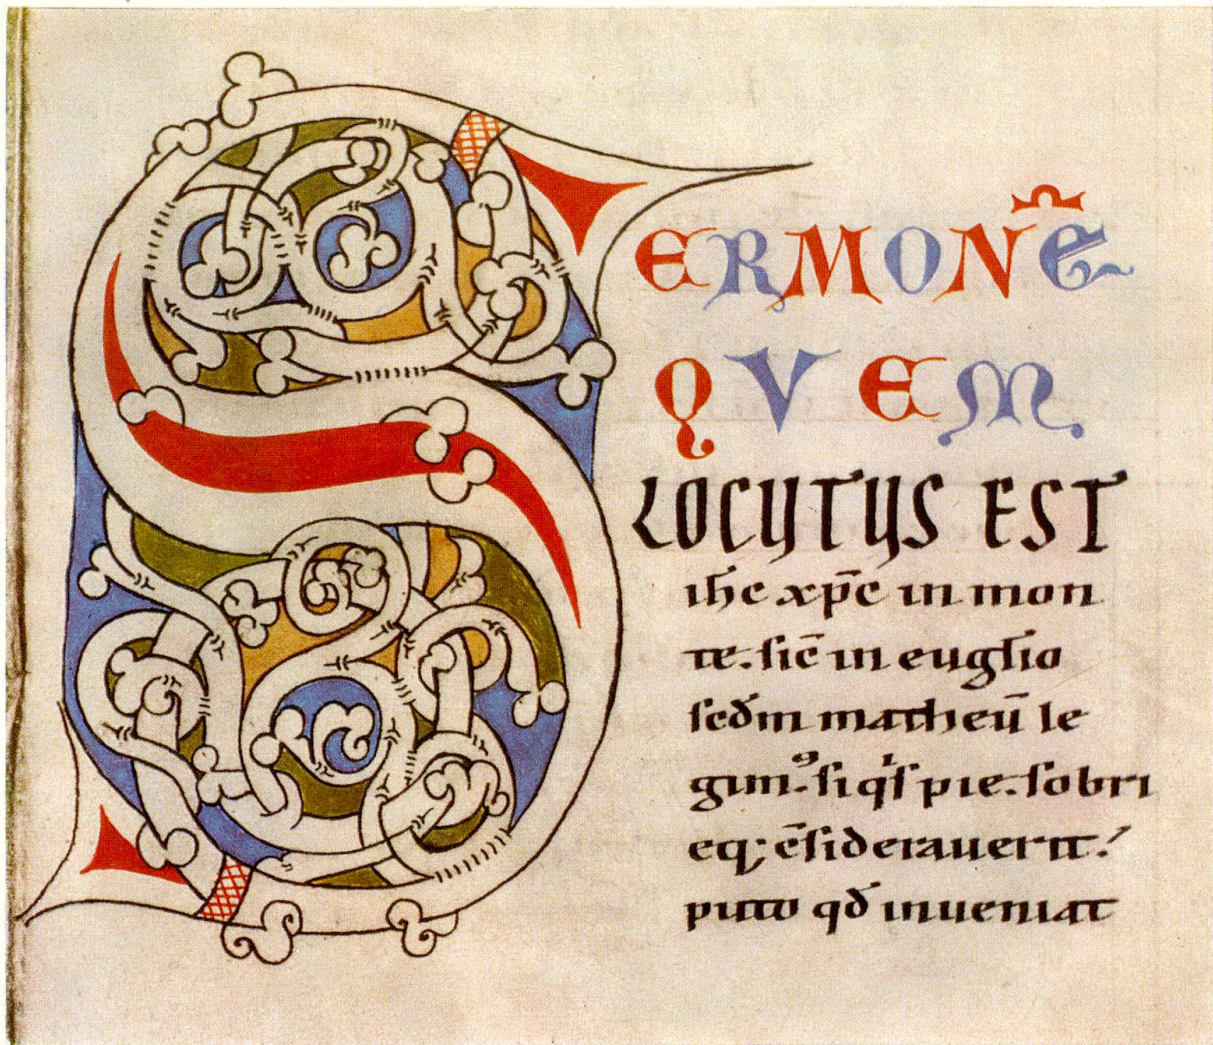 SERMONE̅
QVEM
LOCUTUS EST
ih̅c xp̅c in mon
te. sic̅ in eugl̅io
scd̅m matheu̅ le
gim⁹. siqͥs pie. sobri
eq; c̅siderauerit.
puto qđ inueniat